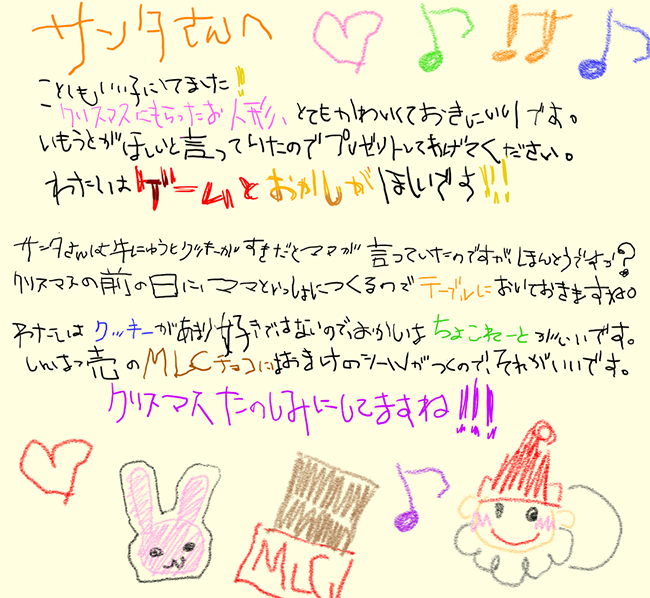 サンタさんへ
ことしもいい子にしてました!!
クリスマスにもらったお人形、とてもかわいくておきにいりです。
いもうとがほしいと言っていたのでプレゼントしてあげてください。
わたしはゲームとおかしがほしいです!!
サンタさんは牛にゅうとクッキーがすきだとママが言っていたのですが、ほんとうですか?
クリスマスの前の日に、ママといっしょにつくるのでテーブルにおいておきますね。
わたしはクッキーがあまり好きではないのでおかしはちょこれーとがいいです。
しんはつ売のMLCチョコにはおまけのシールがつくので、それがいいです。
クリスマスたのしみにしてますね!!!
MLC